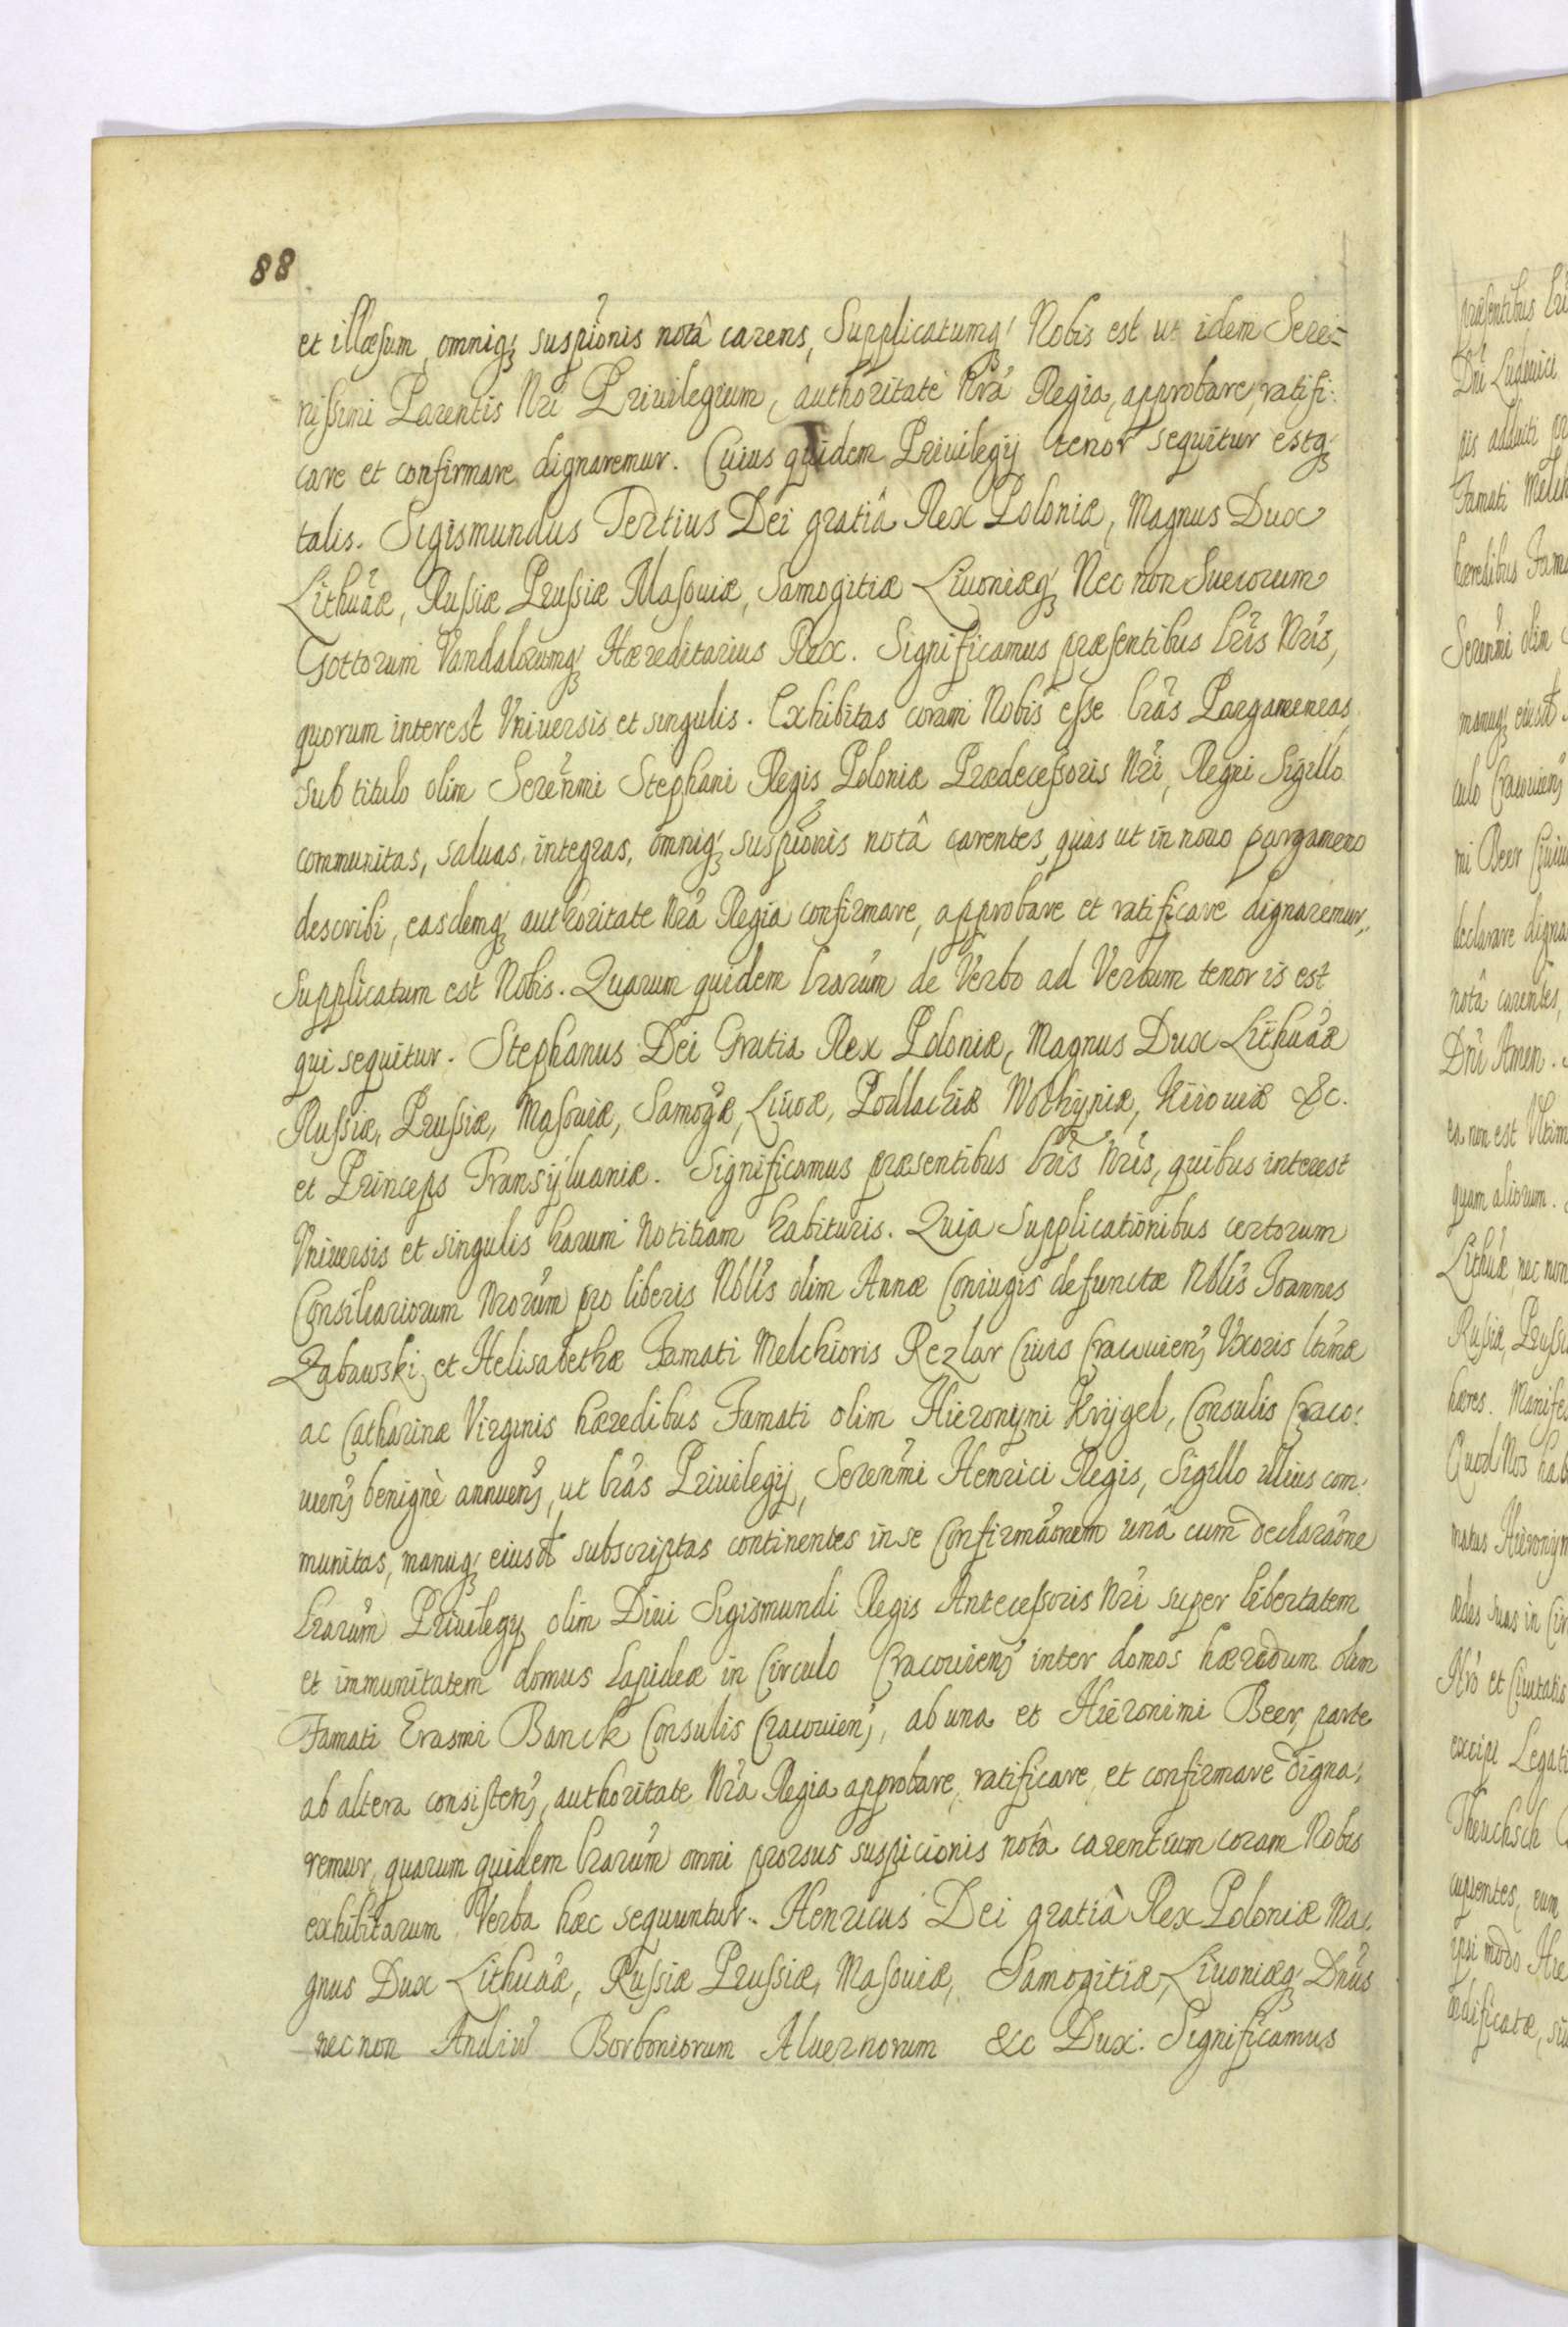 88
et illæsum, omniq; suspiõnis notâ carens, Supplicatumq; Nobis est ut idem Sere-
nissimi Parentis Nri Priuilegium, authoritate Nrâ Regia, approbare, ratifi-
care et confirmare dignaremur. Cuius quidem Priuilegij tenor sequitur estq;
talis. Sigismundus Tertius Dei gratiâ Rex Poloniæ, Magnus Dux
Lithuãæ, Russiæ Prussiæ Masouiæ, Samogitiæ Liuoniæq; Nec non Suecorum
Gottorum Vandalorumq; Hæreditarius Rex. Significamus præsentibus lris Nris,
quorum interest Vniuersis et singulis. Exhibitas coram Nobis esse lras Pargameneas,
sub titulo olim Serenmi Stephani Regis Poloniæ Prædecessoris Nri, Regni Sigillo
communitas, saluas, integras, omniq; suspiõnis notâ carentes, quas ut in nouo pargameno
describi, easdemq; authoritate Nrâ Regia confirmare, approbare et ratificare dignaremur,
Supplicatum est Nobis. Quarum quidem lrarum de Verbo ad Verbum tenor is est
qui sequitur. Stephanus Dei Gratia Rex Poloniæ, Magnus Dux Lithuãæ
Russiæ, Prussiæ, Masouiæ, Samogæ, Liuoæ, Podlachiæ Wolhyniæ, Kiiouiæ &c.
et Princeps Transijluaniæ. Significamus præsentibus lris Nris, quibus interest
Vniuersis et singulis harum notitiam habituris. Quia Supplicationibus certorum
Consiliariorum Nrorum pro liberis Nblis olim Annæ Coniugis defunctæ Nblis Joannis
Zabawski, et Helisabethæ Famati Melchioris Rezlar Ciuis Cracouien; Vxoris ltimæ
ac Catharinæ Virginis hæredibus Famati olim Hieronymi Krijgel, Consulis Craco-
uien; benignè annuen;, ut lras Priuilegij, Serenmi Henrici Regis, Sigillo illius com-
munitas, manuq; eiusd subscriptas continentes in se Confirmãonem unâ cum declarãone
lrarum Priuilegij olim Diui Sigismundi Regis Antecessoris Nri super libertatem
et immunitatem domus Lapideæ in Circulo Cracouien; inter domos hæredum olim
Famati Erasmi Banck Consulis Cracouien;, ab una et Hieronimi Beer, parte
ab altera consisten;, authoritate Nra Regia approbare, ratificare, et confirmare digna-
remur, quarum quidem lrarum omni prorsus suspicionis notâ carentium coram Nobis
exhibitarum Verba hæc sequuntur. Henricus Dei gratiâ Rex Poloniæ Ma-
gnus Dux Lithuãæ, Russiæ Prussiæ, Masouiæ, Samogitiæ, Liuoniæq; Dnus
nec non Andiũ Borboniorum Aluernorum &c Dux. Significamus